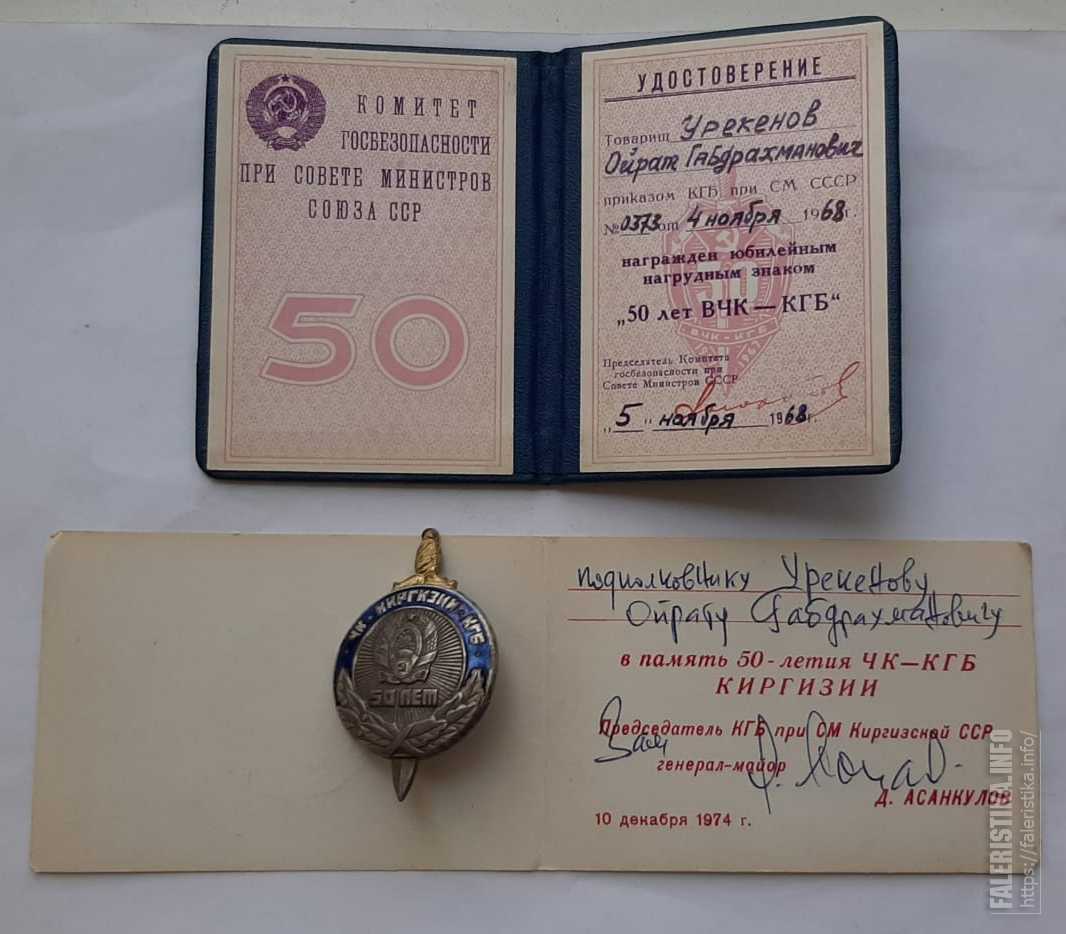 КОМИТЕТ
ГОСБЕЗОПАСНОСТИ
ПРИ СОВЕТЕ МИНИСТРОВ
СОЮЗА ССР
50
УДОСТОВЕРЕНИЕ
Товарищ Урекенов
Ойрат Габдрахманович
приказом КГБ при СМ СССР
№ 0373 от 4 ноября 1968 г.
награжден юбилейным
нагрудным знаком
„50 лет ВЧК—КГБ“
50
ВЧК-КГБ
Председатель Комитета
госбезопасности при
Совете Министров СССР
„5" ноября 1968 г.
ЧК - КИРГИЗИИ - КГБ
50 ЛЕТ
подполковнику Урекенову
Ойрату Габдрахмановичу
в память 50-летия ЧК—КГБ
КИРГИЗИИ
Председатель КГБ при СМ Киргизской ССР
Зам
генерал-майор
Д. АСАНКУЛОВ
10 декабря 1974 г.
FALERISTIKA.INFO
https://faleristika.info/